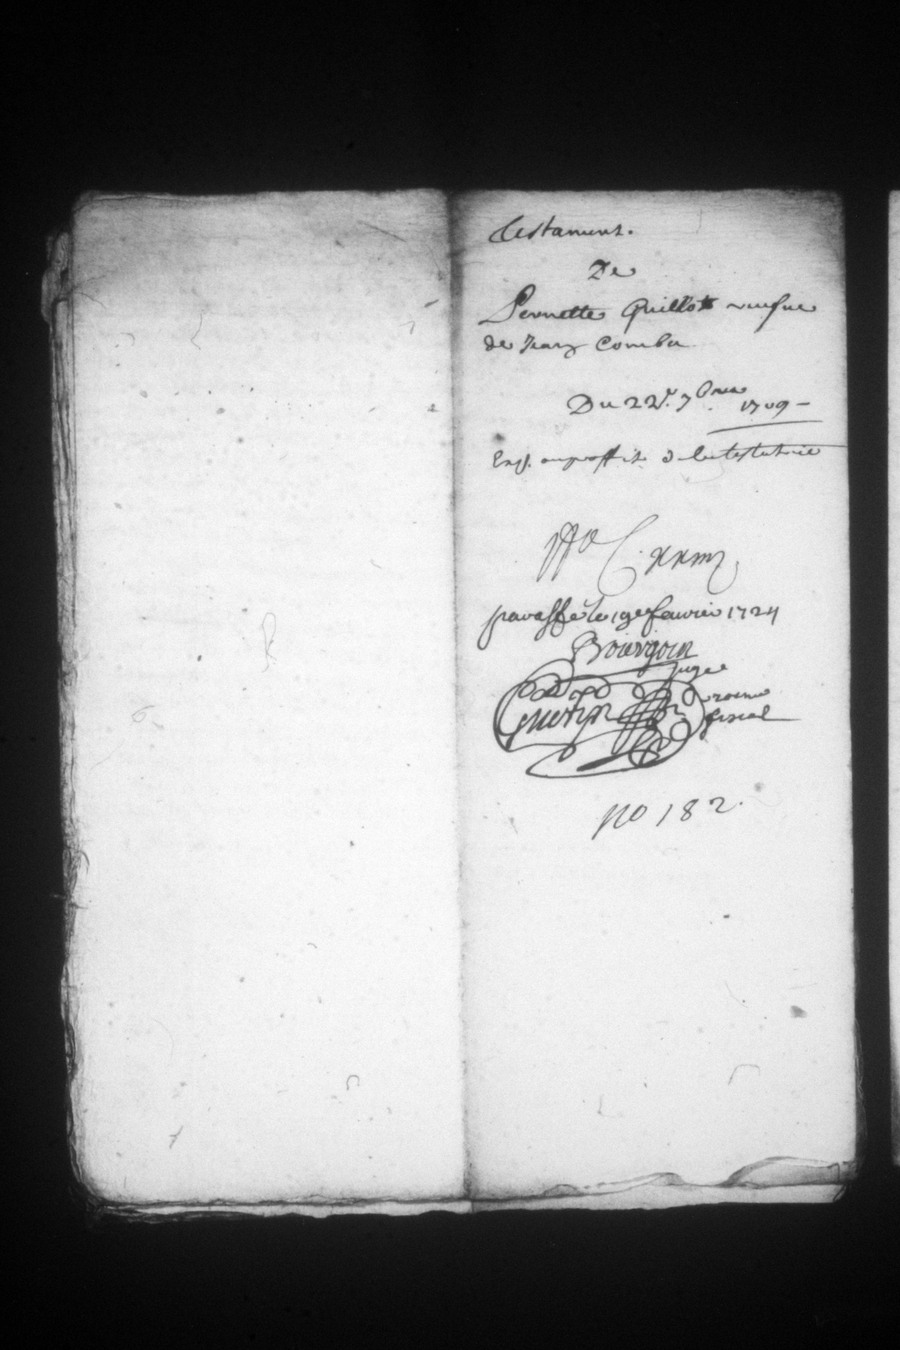 Testament.
De
Pernette Guillot veufue
de Jean Comba
Du 22e. 7bre
1709 -
Exp. au proffit de la testatrice
No C. xxm
paraffé le 19e feurier 1724
Bourgoin
juge
procur
fiscal
no 182.